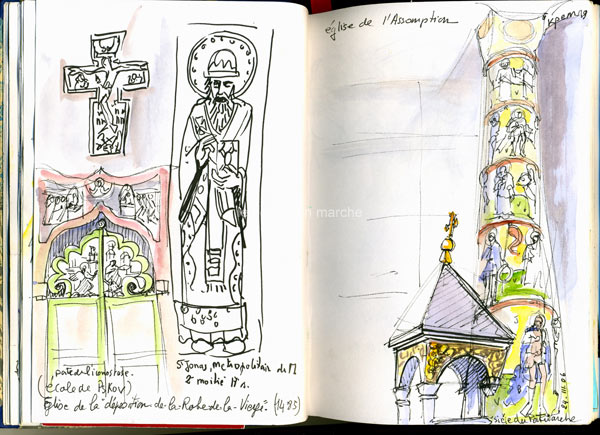 en marche
porte de l'iconostase.
(école de Pskov)
Eglise de la déposition-de-la-Robe-de-la-Vierge (1485)
St Jonas, métropolitain de M
2e moitié 17 s.
église de l'Assomption
Кремля
siège du Patriarche
24.11.06